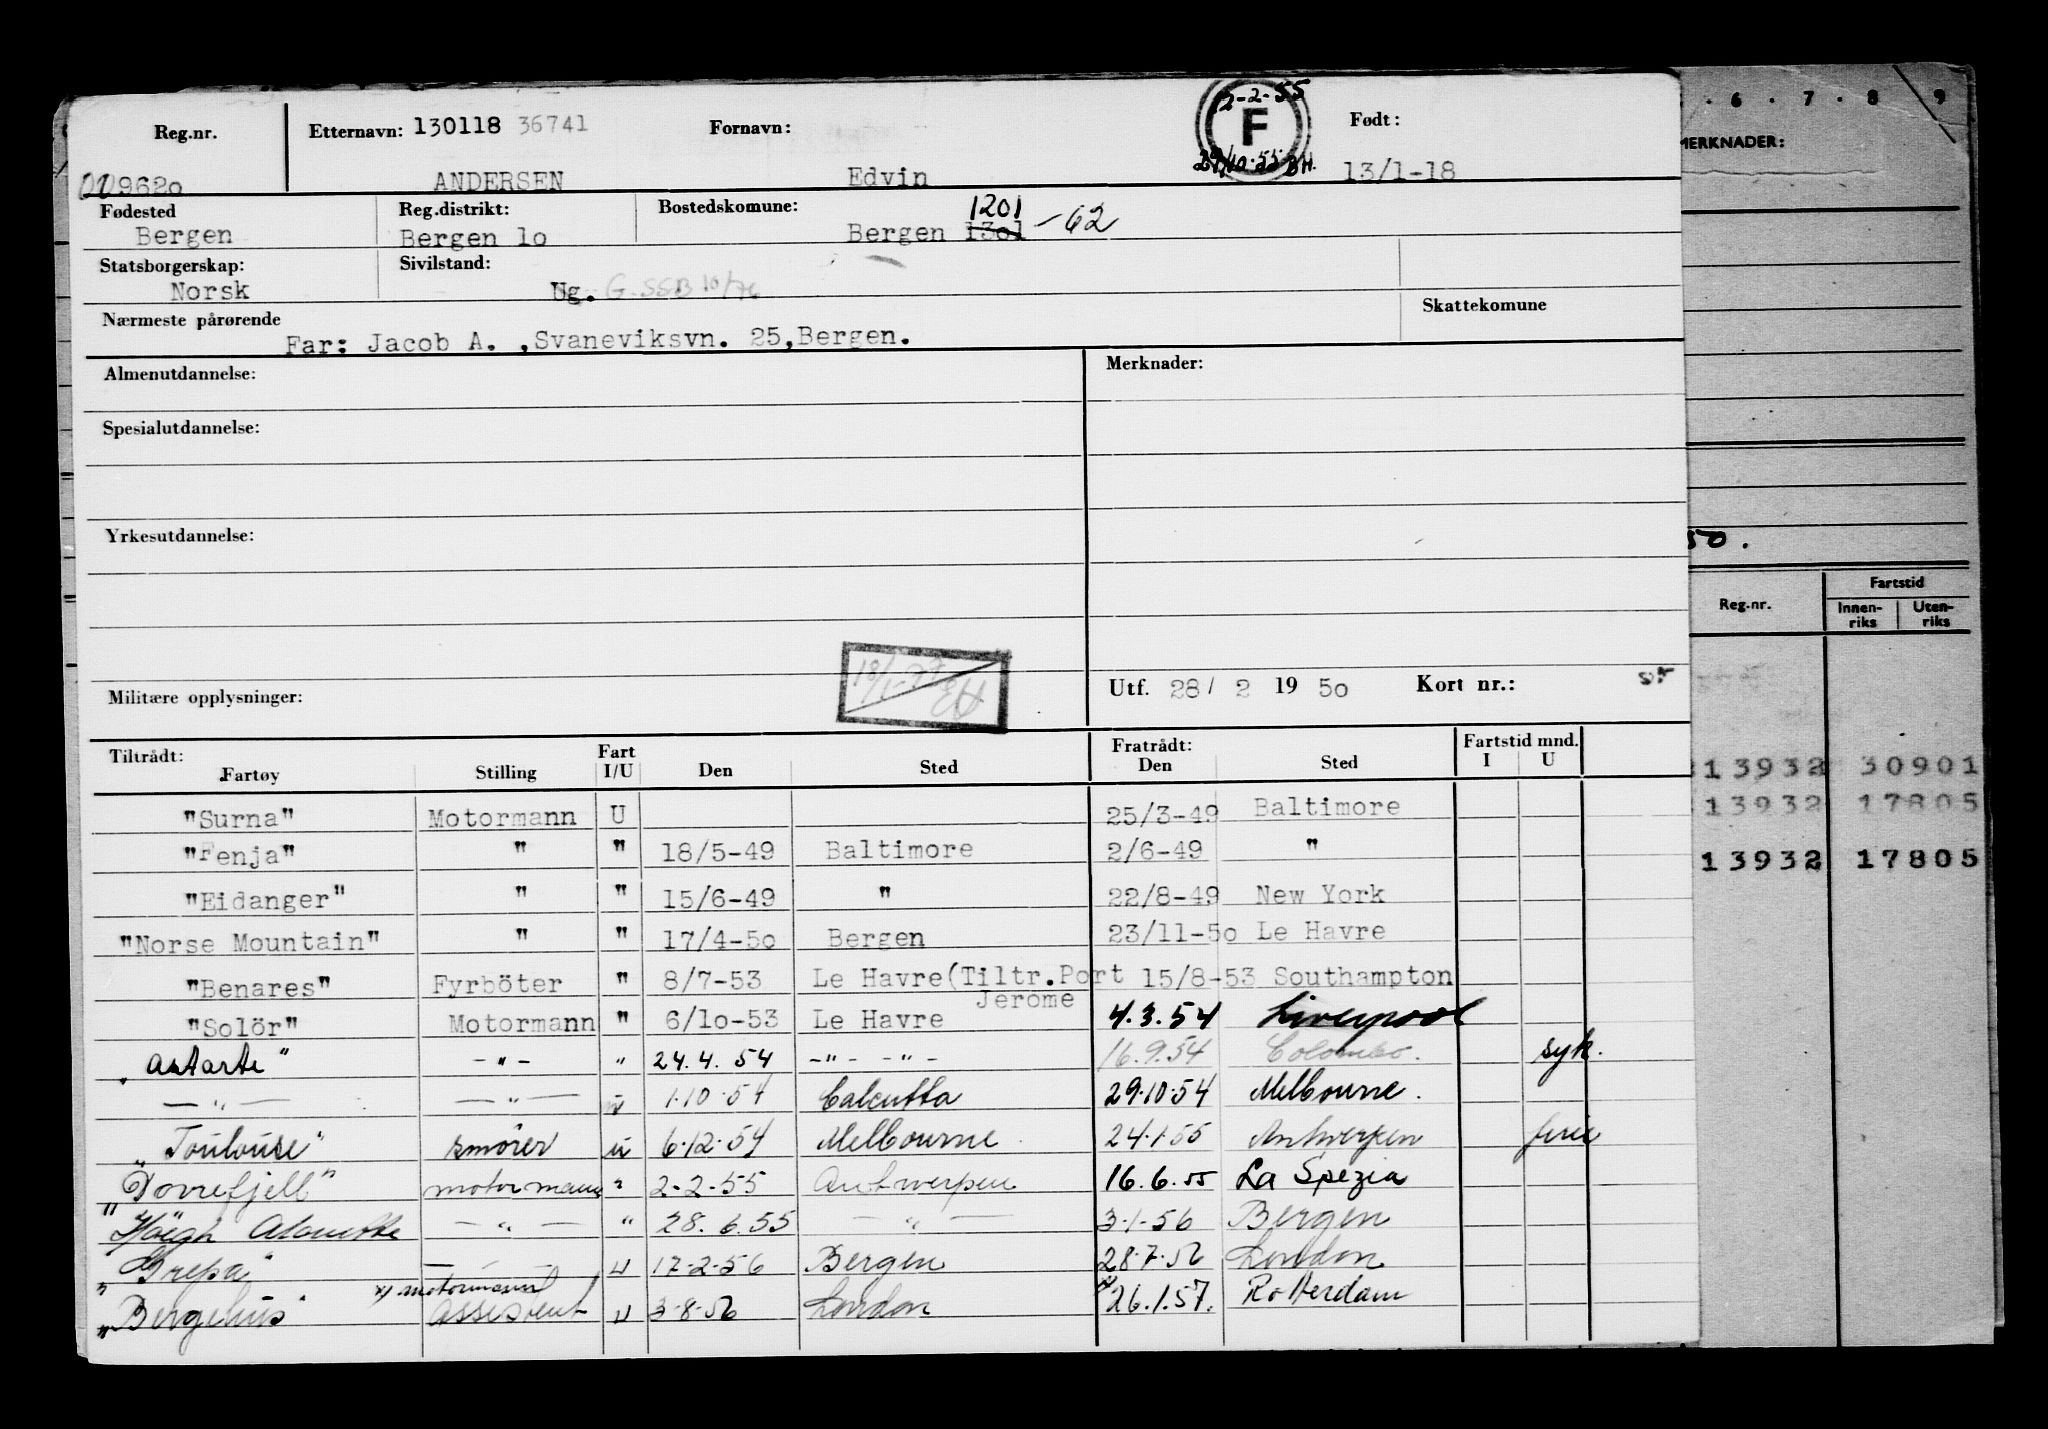 Reg.nr. Etternavn: 130118 36741 Fornavn: 12-2-55 F Født:
009620 ANDERSEN Edvin 29/10-55 BH. 13/1-18
Fødested Reg.distrikt: Bostedskomune: 1201
Bergen Bergen 1o Bergen 13o1 -62
Statsborgerskap: Sivilstand:
Norsk Ug. G. SSB 10/76
Nærmeste pårørende Skattekomune
Far: Jacob A. ,Svaneviksvn. 25,Bergen.
Almenutdannelse: Merknader:
Spesialutdannelse:
Yrkesutdannelse:
Militære opplysninger: Utf. 28/ 2 19 5o Kort nr.:
Tiltrådt: Fart Fratrådt: Fartstid mnd.
Fartøy Stilling I/U Den Sted Den Sted I U
"Surna" Motormann U 25/3-49 Baltimore
"Fenja" " " 18/5-49 Baltimore 2/6-49 "
"Eidanger" " " 15/6-49 " 22/8-49 New York
"Norse Mountain" " " 17/4-5o Bergen 23/11-5o Le Havre
"Benares" Fyrböter " 8/7-53 Le Havre(Tiltr.Port 15/8-53 Southampton
Jerome
"Solör" Motormann " 6/1o-53 Le Havre 4.3.54 Liverpool
"Astarte" -"- " 24.4.54 -"- -"- 16.9.54 Colombo. syk.
-"- -"- u 1.10.54 Calcutta 29.10.54 Melbourne.
"Toulouse" smörer u 6.12.54 Melbourne 24.1.55 Antwerpen ferie
"Dovrefjell" motormann " 2-2-55 Antwerpen 16.6.55 La Spezia
"Höegh -"- " 28.6.55 -"- 3-1-56 Bergen
"Grepa" - - u 17-2-56 Bergen 28.7.56 London
x) motormann
"Bergelius" assistent u 3-8-56 London x 26.1.57. Rotterdam
6 . 7 . 8 9
MERKNADER:
50.
Reg.nr. Fartstid
Innen-riks Uten-riks
13932 30901
13932 17805
13932 17805